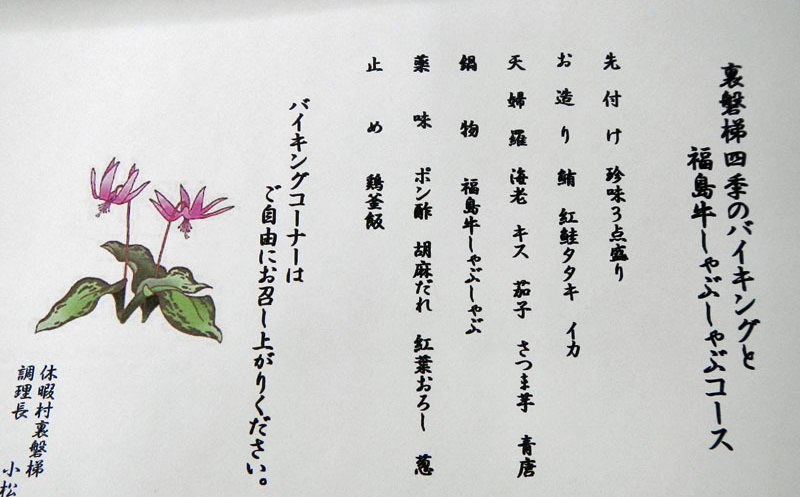 裏磐梯四季のバイキングと
福島牛しゃぶしゃぶコース
先付け 珍味3点盛り
お造り 鮪 紅鮭タタキ イカ
天婦羅 海老 キス 茄子 さつま芋 青唐
鍋物 福島牛しゃぶしゃぶ
薬味 ポン酢 胡麻だれ 紅葉おろし 葱
止め 鶏釜飯
バイキングコーナーは
ご自由にお召し上がりください。
休暇村裏磐梯
調理長 小松